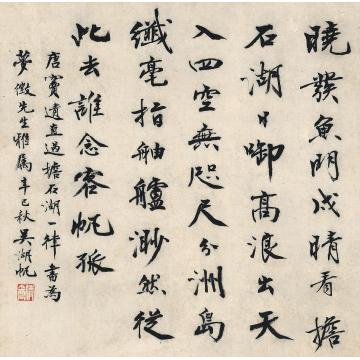 曉發魚門戍晴看擔
石湖日銜高浪出天
入四空無咫尺分洲島
纖毫指舳艫渺然從
此去誰念客帆孤
唐竇遺直過擔石湖一律書為
夢微先生雅屬辛巳秋吳湖帆